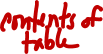 contents of
table